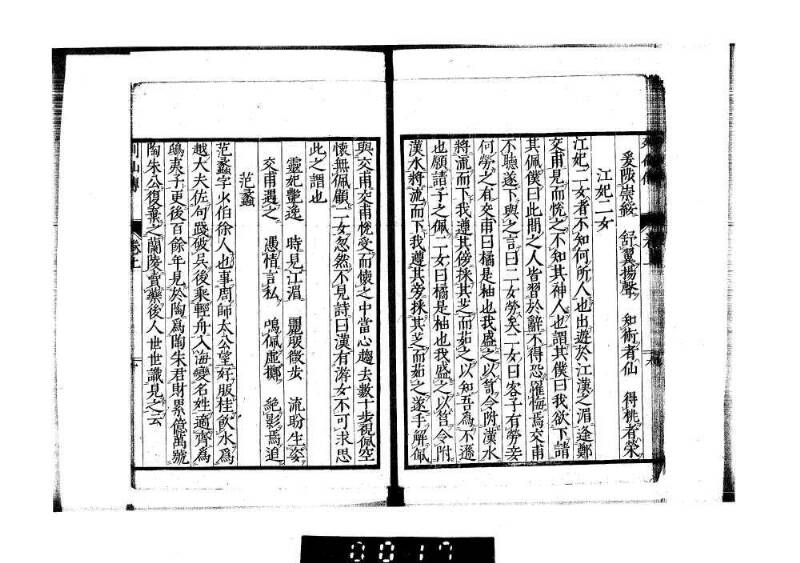 爰陟崇綏　舒翼揚聲　知術者仙　得桃者榮
江妃二女
江妃二女者不知何所人也出遊於江漢之湄逢鄭
交甫見而悅之不知其神人也謂其僕曰我欲下請
其佩僕曰此間之人皆習於辭不得恐罹悔焉交甫
不聽遂下與之言曰二女勞矣二女曰客子有勞妾
何勞之有交甫曰橘是柚也我盛之以笥令附漢水
將流而下我遵其傍採其芝而茹之以知吾為不遜
也願請子之佩二女曰橘是柚也我盛之以筥令附
漢水將流而下我遵其旁採其芝而茹之遂手解佩
與交甫交甫悅受而懷之中當心趨去數十步視佩空
懷無佩顧二女忽然不見詩曰漢有游女不可求思
此之謂也
靈妃艷逸　時見江湄　麗服微步　流盼生姿
交甫遇之　憑情言私　鳴佩虛擲　絕影焉追
范蠡
范蠡字少伯徐人也事周師太公望好服桂飲水為
越大夫佐句踐破吳後乘輕舟入海變名姓適齊為
鴟夷子更後百餘年見於陶為陶朱君財累億萬號
陶朱公後棄之蘭陵賣藥後人世世識見之云
卷上
0017